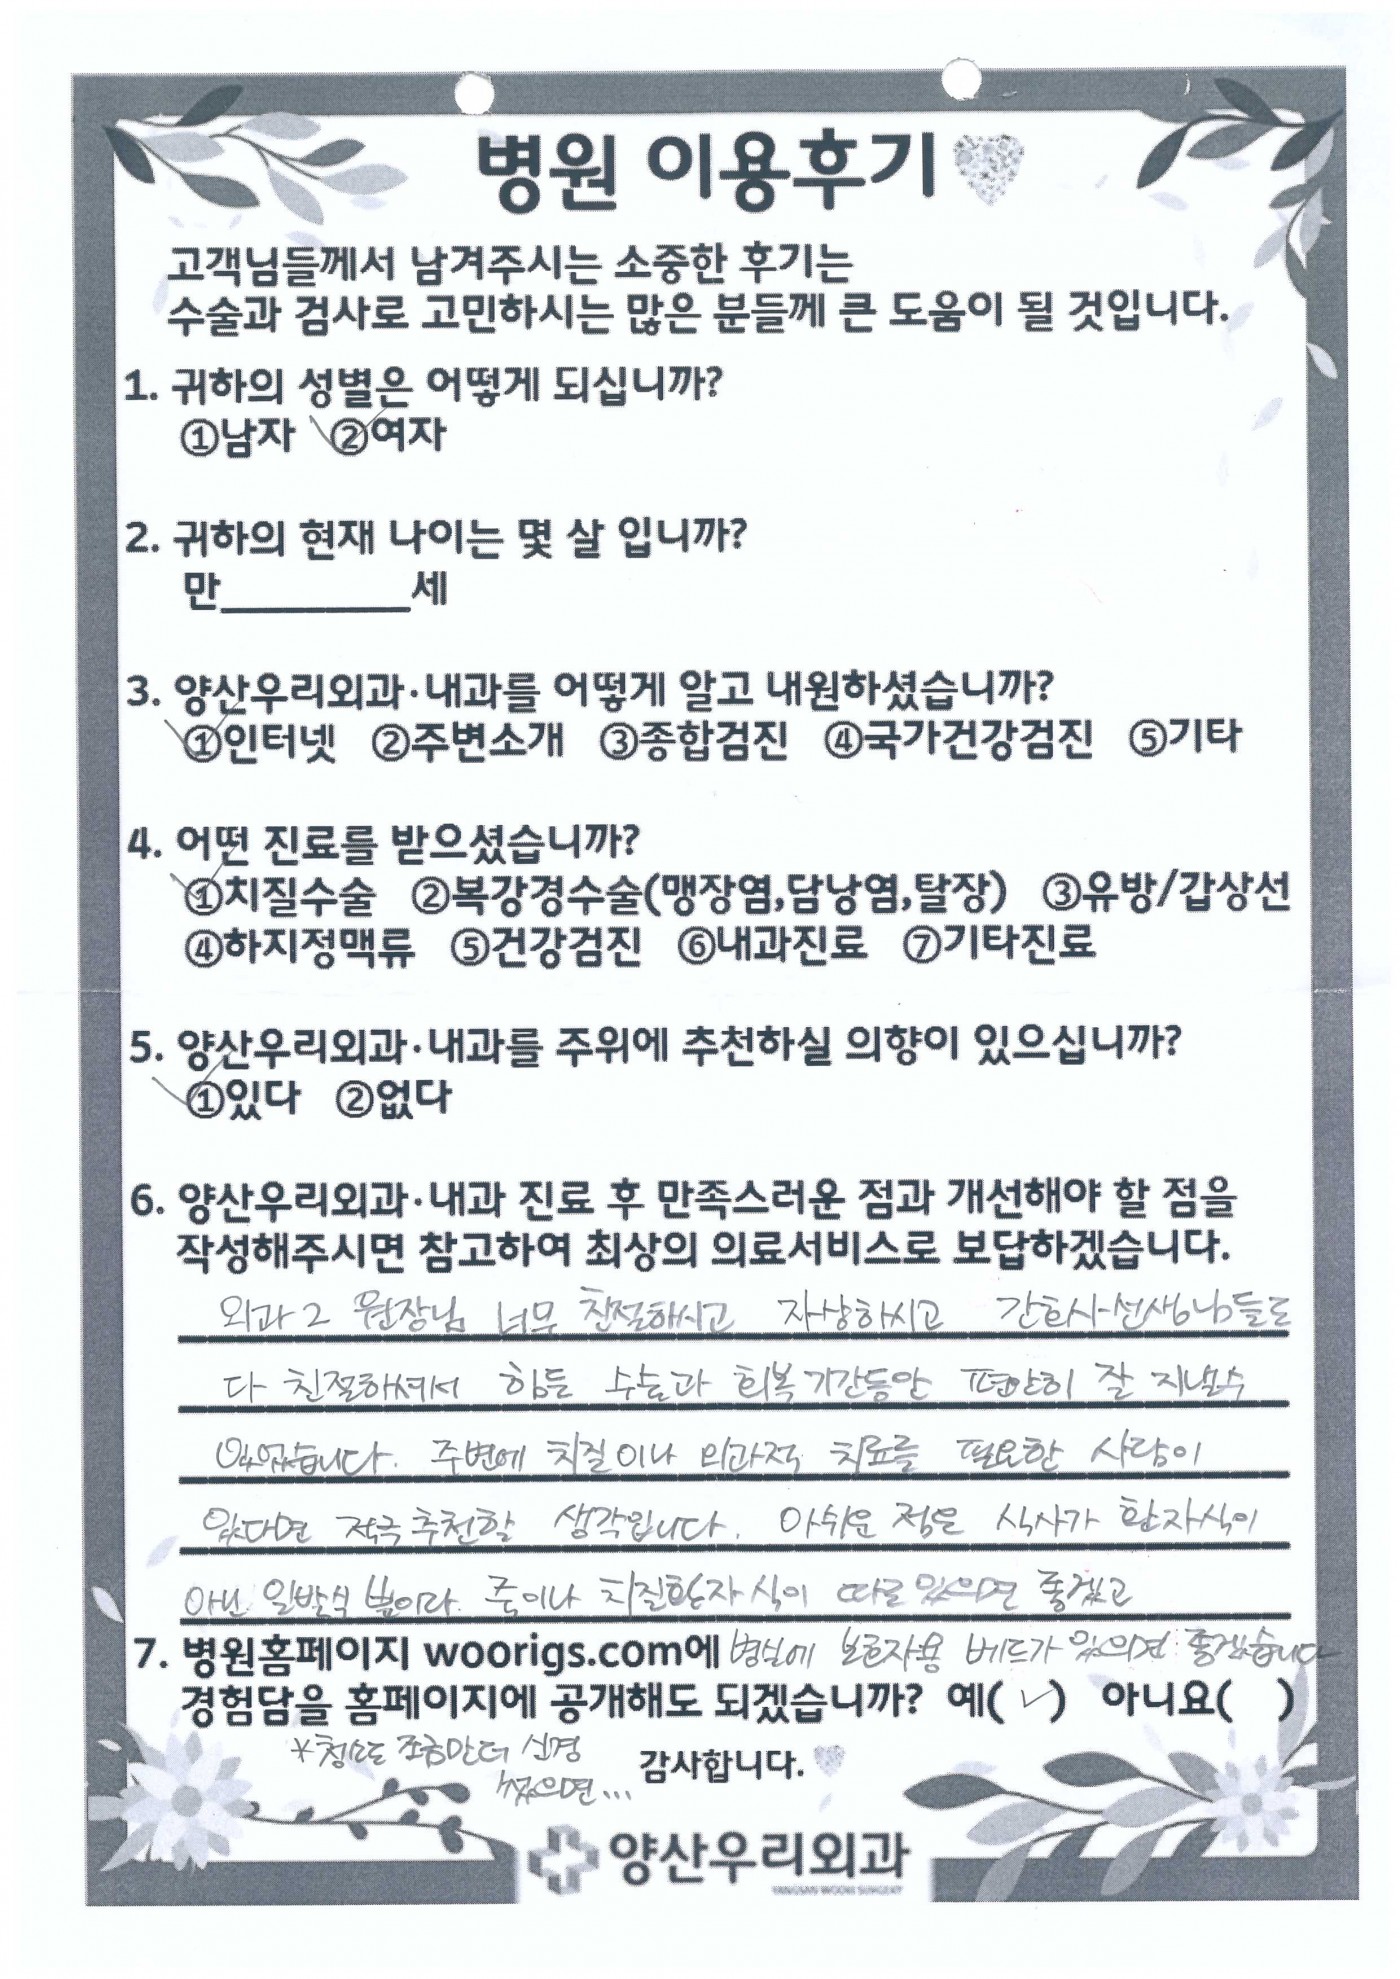 병원 이용후기
고객님들께서 남겨주시는 소중한 후기는
수술과 검사로 고민하시는 많은 분들께 큰 도움이 될 것입니다.
1. 귀하의 성별은 어떻게 되십니까?
①남자 ②여자
2. 귀하의 현재 나이는 몇 살 입니까?
만_________세
3. 양산우리외과·내과를 어떻게 알고 내원하셨습니까?
①인터넷 ②주변소개 ③종합검진 ④국가건강검진 ⑤기타
4. 어떤 진료를 받으셨습니까?
①치질수술 ②복강경수술(맹장염,담낭염,탈장) ③유방/갑상선
④하지정맥류 ⑤건강검진 ⑥내과진료 ⑦기타진료
5. 양산우리외과·내과를 주위에 추천하실 의향이 있으십니까?
①있다 ②없다
6. 양산우리외과·내과 진료 후 만족스러운 점과 개선해야 할 점을
작성해주시면 참고하여 최상의 의료서비스로 보답하겠습니다.
외과2 원장님 너무 친절하시고 자상하시고 간호사선생님들도
다 친절하셔서 힘든 수술과 회복기간동안 편안히 잘 지낼수
있었습니다. 주변에 치질이나 외과적 치료를 필요한 사람이
있다면 적극추천할 생각입니다. 아쉬운 점은 식사가 환자식이
아닌 일반식 뿐이라 죽이나 치질환자식이 따로 있으면 좋겠고
7. 병원홈페이지 woorigs.com에 병실에 보호자용 베드가 있으면 좋겠습니다
경험담을 홈페이지에 공개해도 되겠습니까? 예( ✓ ) 아니요( )
*청소도 조금만 더 신경
썼으면...
감사합니다.
양산우리외과
YANGSAN WOORI SURGERY